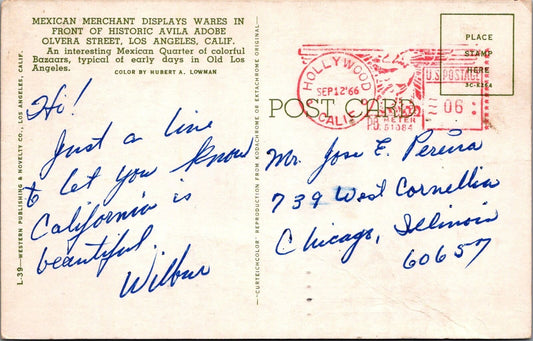 MEXICAN MERCHANT DISPLAYS WARES IN
FRONT OF HISTORIC AVILA ADOBE
OLVERA STREET, LOS ANGELES, CALIF.
An interesting Mexican Quarter of colorful
Bazaars, typical of early days in Old Los
Angeles.
COLOR BY HUBERT A. LOWMAN
Hi!
Just a line
to let you know
California is
beautiful.
Wilbur
L-39—WESTERN PUBLISHING & NOVELTY CO., LOS ANGELES, CALIF.
CURTEICHCOLOR® REPRODUCTION FROM KODACHROME OR EKTACHROME ORIGINAL
POST CARD
PLACE
STAMP
HERE
HOLLYWOOD
SEP 12 '66
CALIF
U.S. POSTAGE
06
METER
P.B.
Mr. Jose E. Pereira
739 West Cornellia
Chicago, Illinois
60657